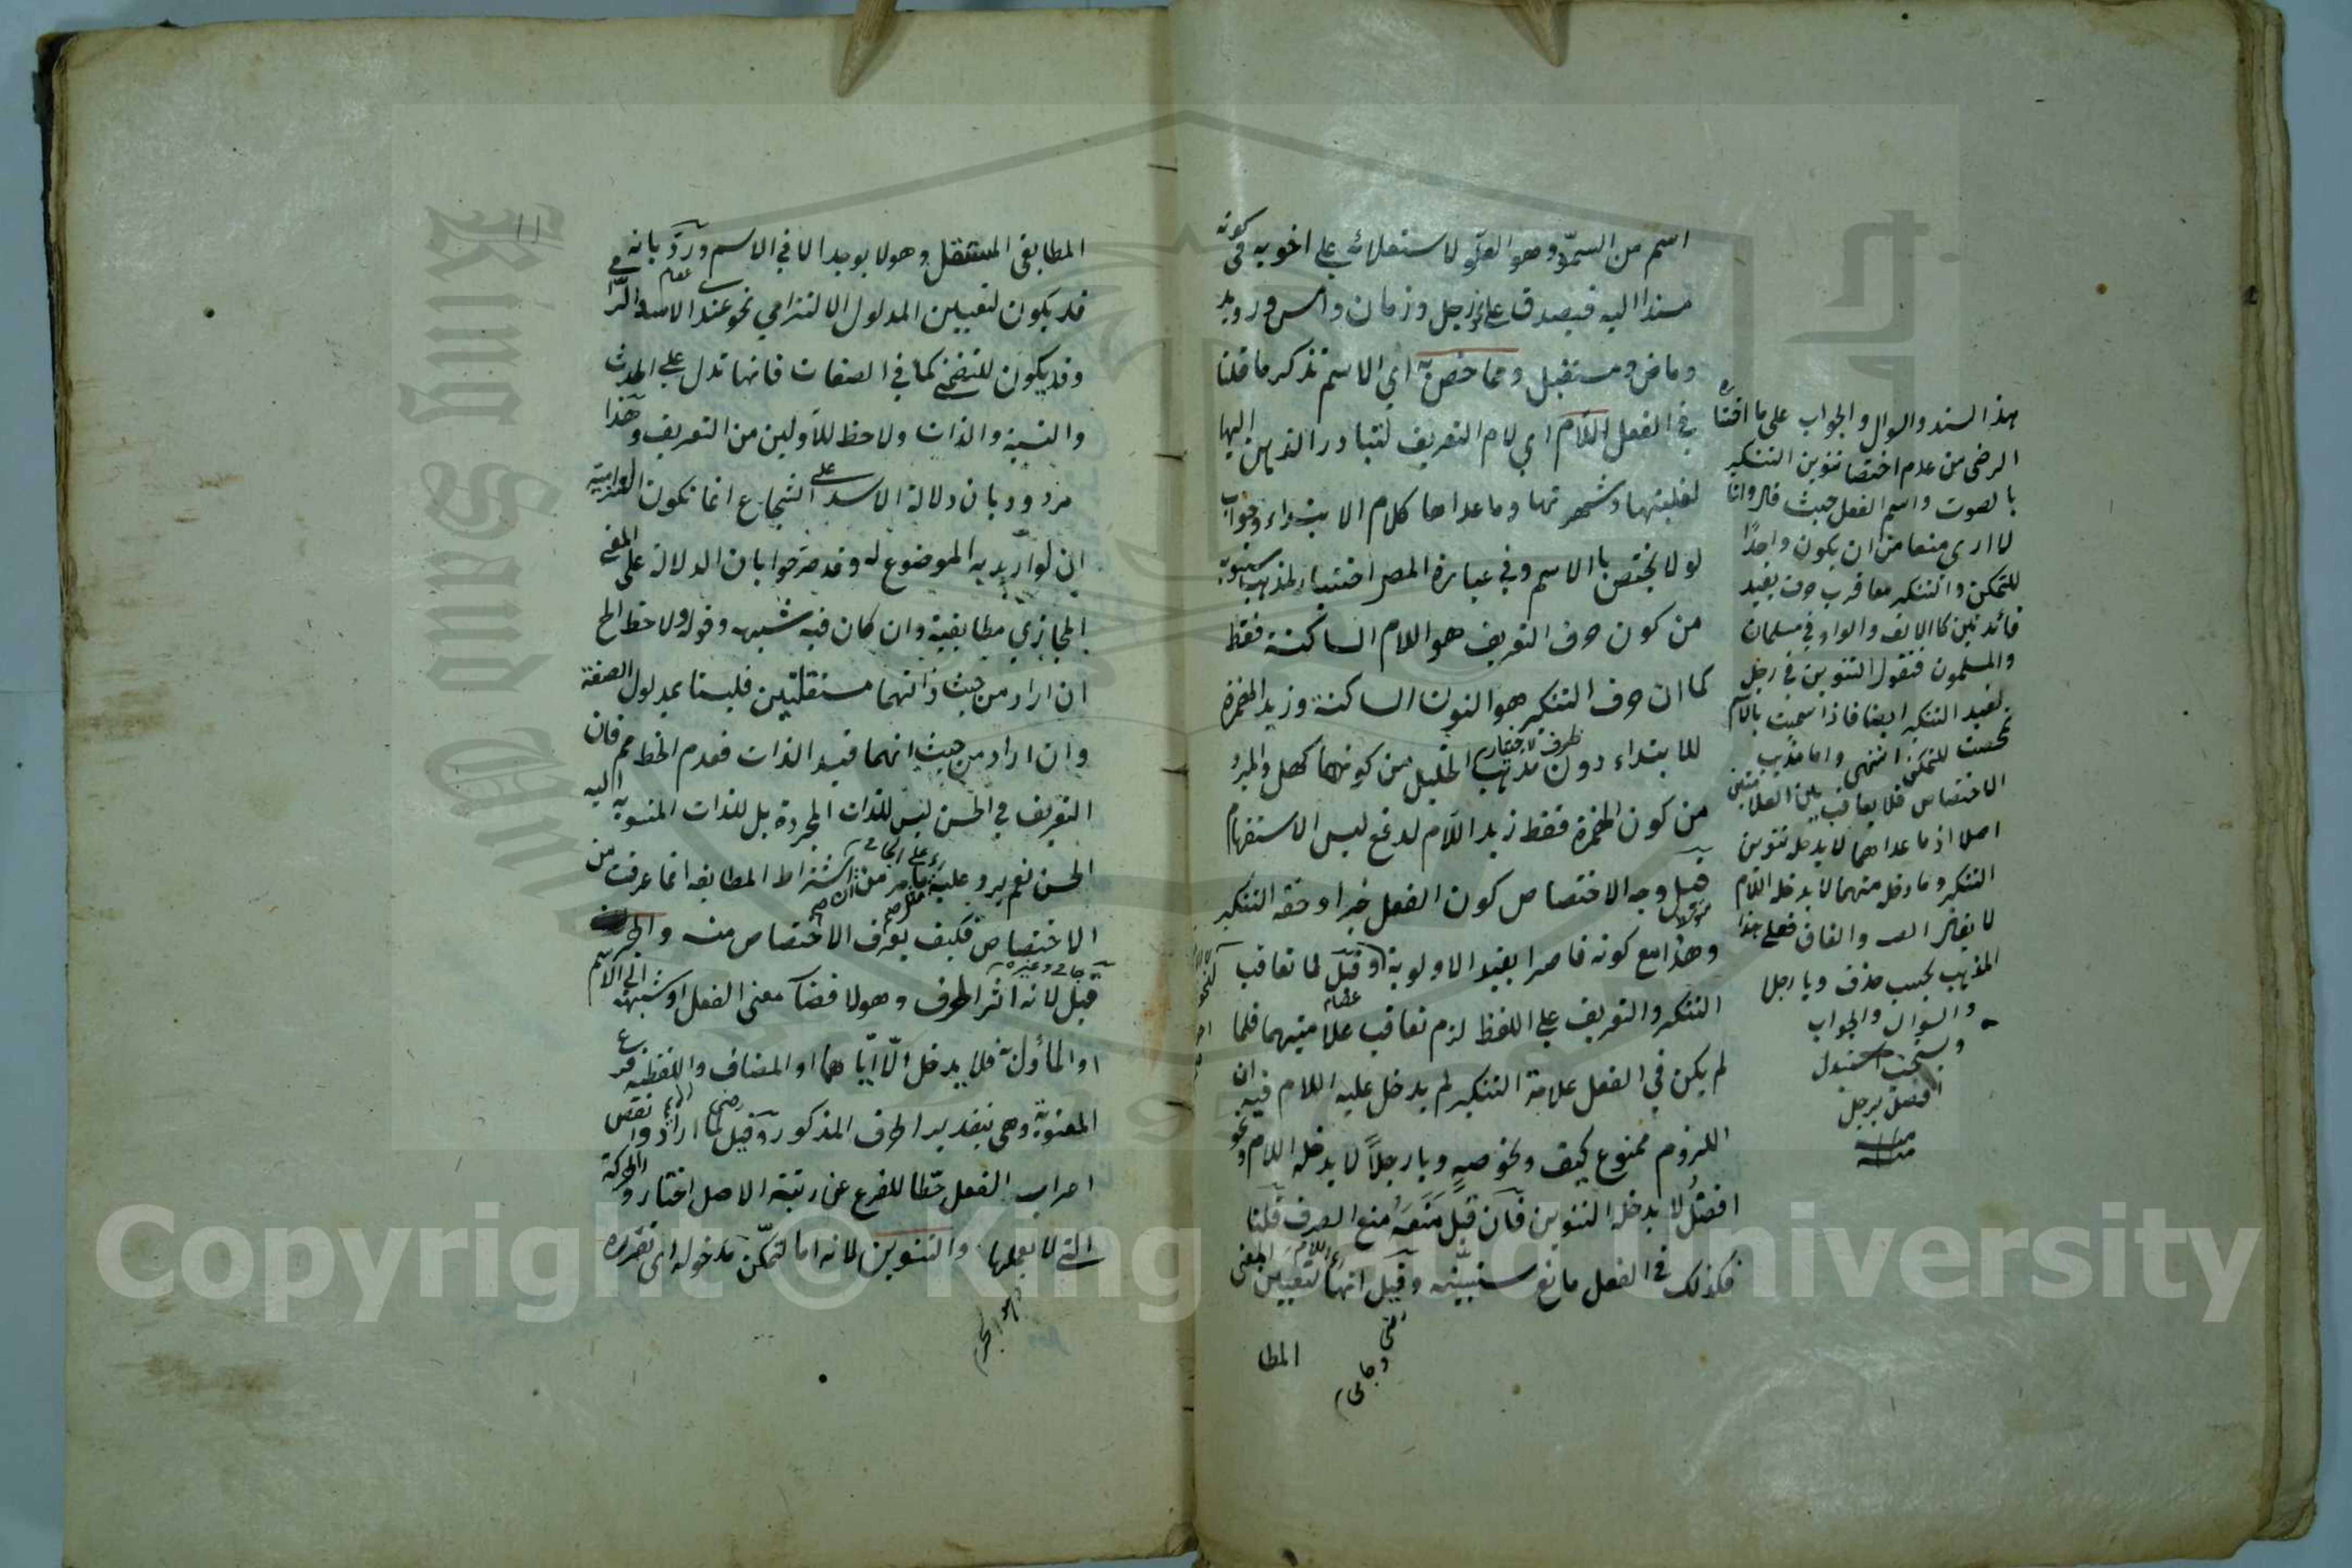 اسم من السموّ وهو العلو لاستعلائه على اخويه في كونه
مسندا اليه فيصدق على رجل وزمان وامس ورويد
وماض ومستقبل ومما خص به اي الاسم تذكر ما قلنا
في الفعل اللام اي لام التعريف لتبادر الذهن اليها
لغلبتها وشهرتها وما عداها كلام الابتداء وجواب
لو لا يختص بالاسم وفي عبارة المصـ اختيار لمذهب سيبويه
من كون حرف التعريف هو اللام الساكنة فقط
كما ان حرف التنكير هو النون الساكنة وزيد الهمزة
للابتداء دون مذهب الخليل من كونهما كهل والمبرد
من كون الهمزة فقط زيد اللام لدفع لبس الاستفهام
قيل وجه الاختصاص كون الفعل خبرا وحقه التنكير
وهذا مع كونه قاصرا يفيد الاولوية وقيل لما تعاقب
التنكير والتعريف على اللفظ لزم تعاقب علامتيهما فلما
لم يكن في الفعل علامة التنكير لم يدخل عليه اللام فيه ان
اللزوم ممنوع كيف ونحو صهٍ ويا رجلاً لا يدخله اللام ونحو
افضل لا يدخله التنوين فان قيل منعه منع الصرف قلنا
فكذلك في الفعل مانع سنبينه وقيل انها لتعيين المعنى
المطا
هذا السند والسوال والجواب على ما اختاره
الرضى من عدم اختصا تنوين التنكير
بالصوت واسم الفعل حيث قال وانا
لا ارى منعا من ان يكون واحدًا
للتمكن والتنكير معا فرب حرف يفيد
فائدتين كالالف والواو في مسلمان
والمسلمون فنقول التنوين في رجل
يفيد التنكير ايضا فاذا سميت بالاسم
تمحضت للتمكن انتهى واما مذهب
الاختصاص فلا يعاقب بين العلامتين
اصلا اذ ما عداهما لا يدخله تنوين
التنكير وما دخله منهما لا يدخله اللام
المذهب يجب حذف ويا رجلا
والسوال والجواب
افضل برجل
منه
المطابقى المستقل وهو لا يوجد الا في الاسم وردّ بانه
قد يكون لتعيين المدلول الالتزامي نحو عند الاسد
وقد يكون للتضمني كما في الصفات فانها تدل على الحدث
والنسبة والذات ولا حظ للاولين من التعريف وهذا
مردود بان دلالة الاسد على الشجاع انما تكون التزامية
ان لو اريد به الموضوع له وقد صرحوا بان الدلالة على المعنى
المجازي مطابقية وان كان فيه شبهه وقوله ولا حظ الخ
ان اراد من حيث ذاتهما مستقلتين فليستا بمدلول الصفة
وان اراد من حيث انهما قيد الذات فعدم الحظ مم فان
التعريف في الحسن ليس للذات المجردة بل للذات المنسوبة اليه
الحسن نعم يرد عليه ما مر من ان اشتراط المطابقه انما عرفت من
الاختصاص فكيف يعرف الاختصاص منه والجر
قيل لانه اثر الحرف وهو لافضاء معنى الفعل او شبهه الى الاسم
او المأول به فلا يدخل الّا ايّاهما او المضاف واللفظيه فرع
المعنوية وهي بتقدير الحرف المذكور وقيل لما اراد وا نقص
اعراب الفعل حطا للفرع عن رتبة الاصل اختار والحركة
التي لا يعملها والتنوين لانه اما لتمكّن مدخوله اى تقرره
King Saud Un
Copyright © King Saud University